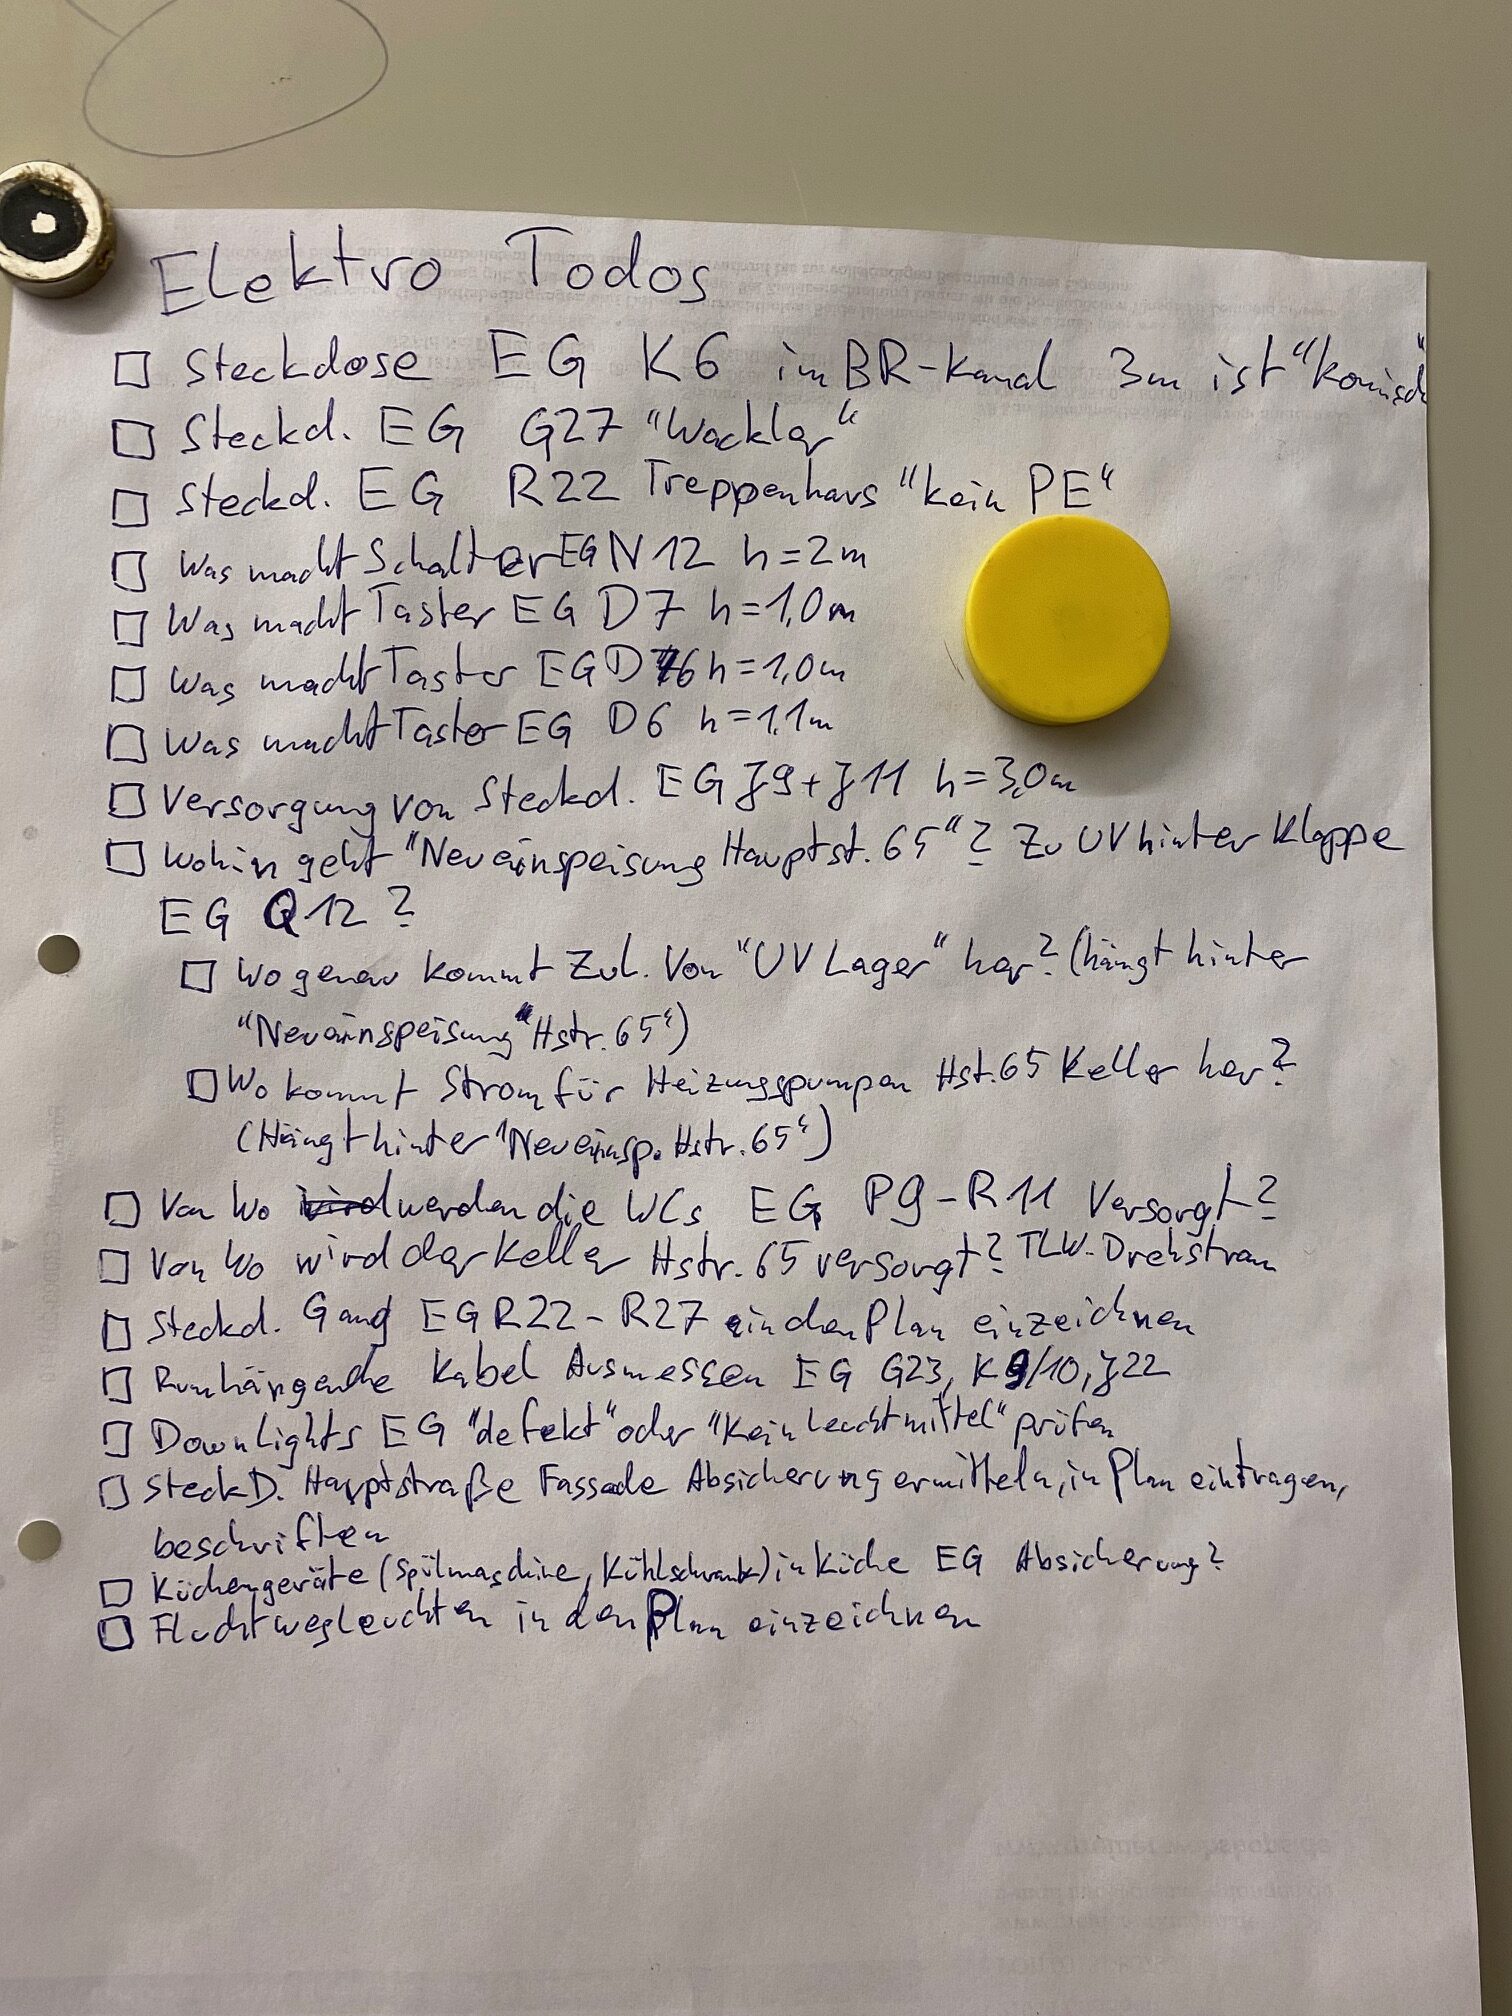 Elektro Todos
☐ Steckdose EG K6 im BR-Kanal 3m ist "komisch"
☐ Steckd. EG G27 "Wackler"
☐ Steckd. EG R22 Treppenhaus "kein PE"
☐ Was macht Schalter EG N12 h=2m
☐ Was macht Taster EG D7 h=1,0m
☐ Was macht Taster EG D6 h=1,0m
☐ Was macht Taster EG D6 h=1,1m
☐ Versorgung von Steckd. EG J9+J11 h=3,0m
☐ Wohin geht "Neueinspeisung Hauptst. 65"? Zu UV hinter Klappe
EG Q12?
☐ Wo genau kommt Zul. Von "UV Lager" her? (hängt hinter
"Neueinspeisung Hstr. 65")
☐ Wo kommt Strom für Heizungspumpen Hst. 65 Keller her?
(Hängt hinter "Neueinsp. Hstr. 65")
☐ Von Wo werden die WCs EG P9-R11 Versorgt?
☐ Von Wo wird der Keller Hstr. 65 versorgt? TLW. Drehstrom
☐ Steckd. Gang EG R22-R27 in den Plan einzeichnen
☐ Rumhängende Kabel Ausmessen EG G23, K9/10, J22
☐ Downlights EG "defekt" oder "Kein Leuchtmittel" prüfen
☐ SteckD. Hauptstraße Fassade Absicherung ermitteln, in Plan eintragen,
beschriften
☐ Küchengeräte (Spülmaschine, Kühlschrank) in Küche EG Absicherung?
☐ Fluchtwegleuchten in den Plan einzeichnen